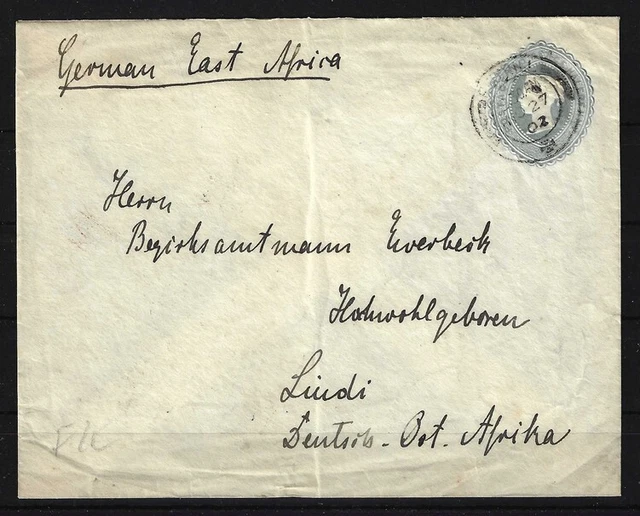 German East Africa
27
02
Herrn
Bezirksamtmann Ewerbeck
Hochwohlgeboren
Lindi
Deutsch-Ost-Afrika